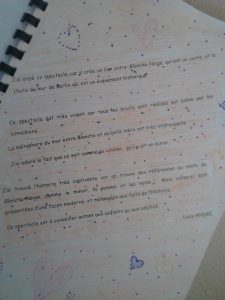 J'ai aimé ce spectacle car il crée un lien entre Blanche-Neige, qui est un conte, et la
chute du mur de Berlin qui est un événement historique.
Ce spectacle est très vivant car tous les bruits sont réalisés sur scène par les
comédiens.
La métaphore du mur entre Blanche et sa belle-mère est très intéressante.
J'ai adoré le fait que ce soit comme au cinéma, qu'il y ait un écran.
J'ai trouvé l'histoire très captivante car on trouve des références au conte de
Blanche-Neige, comme le miroir, la pomme et les nains. Mais celles-ci sont
présentées d'une façon moderne et mélangées aux faits de l'histoire.
Ce spectacle est à conseiller autant aux enfants qu'aux adultes.
Lucy ANDRÉ